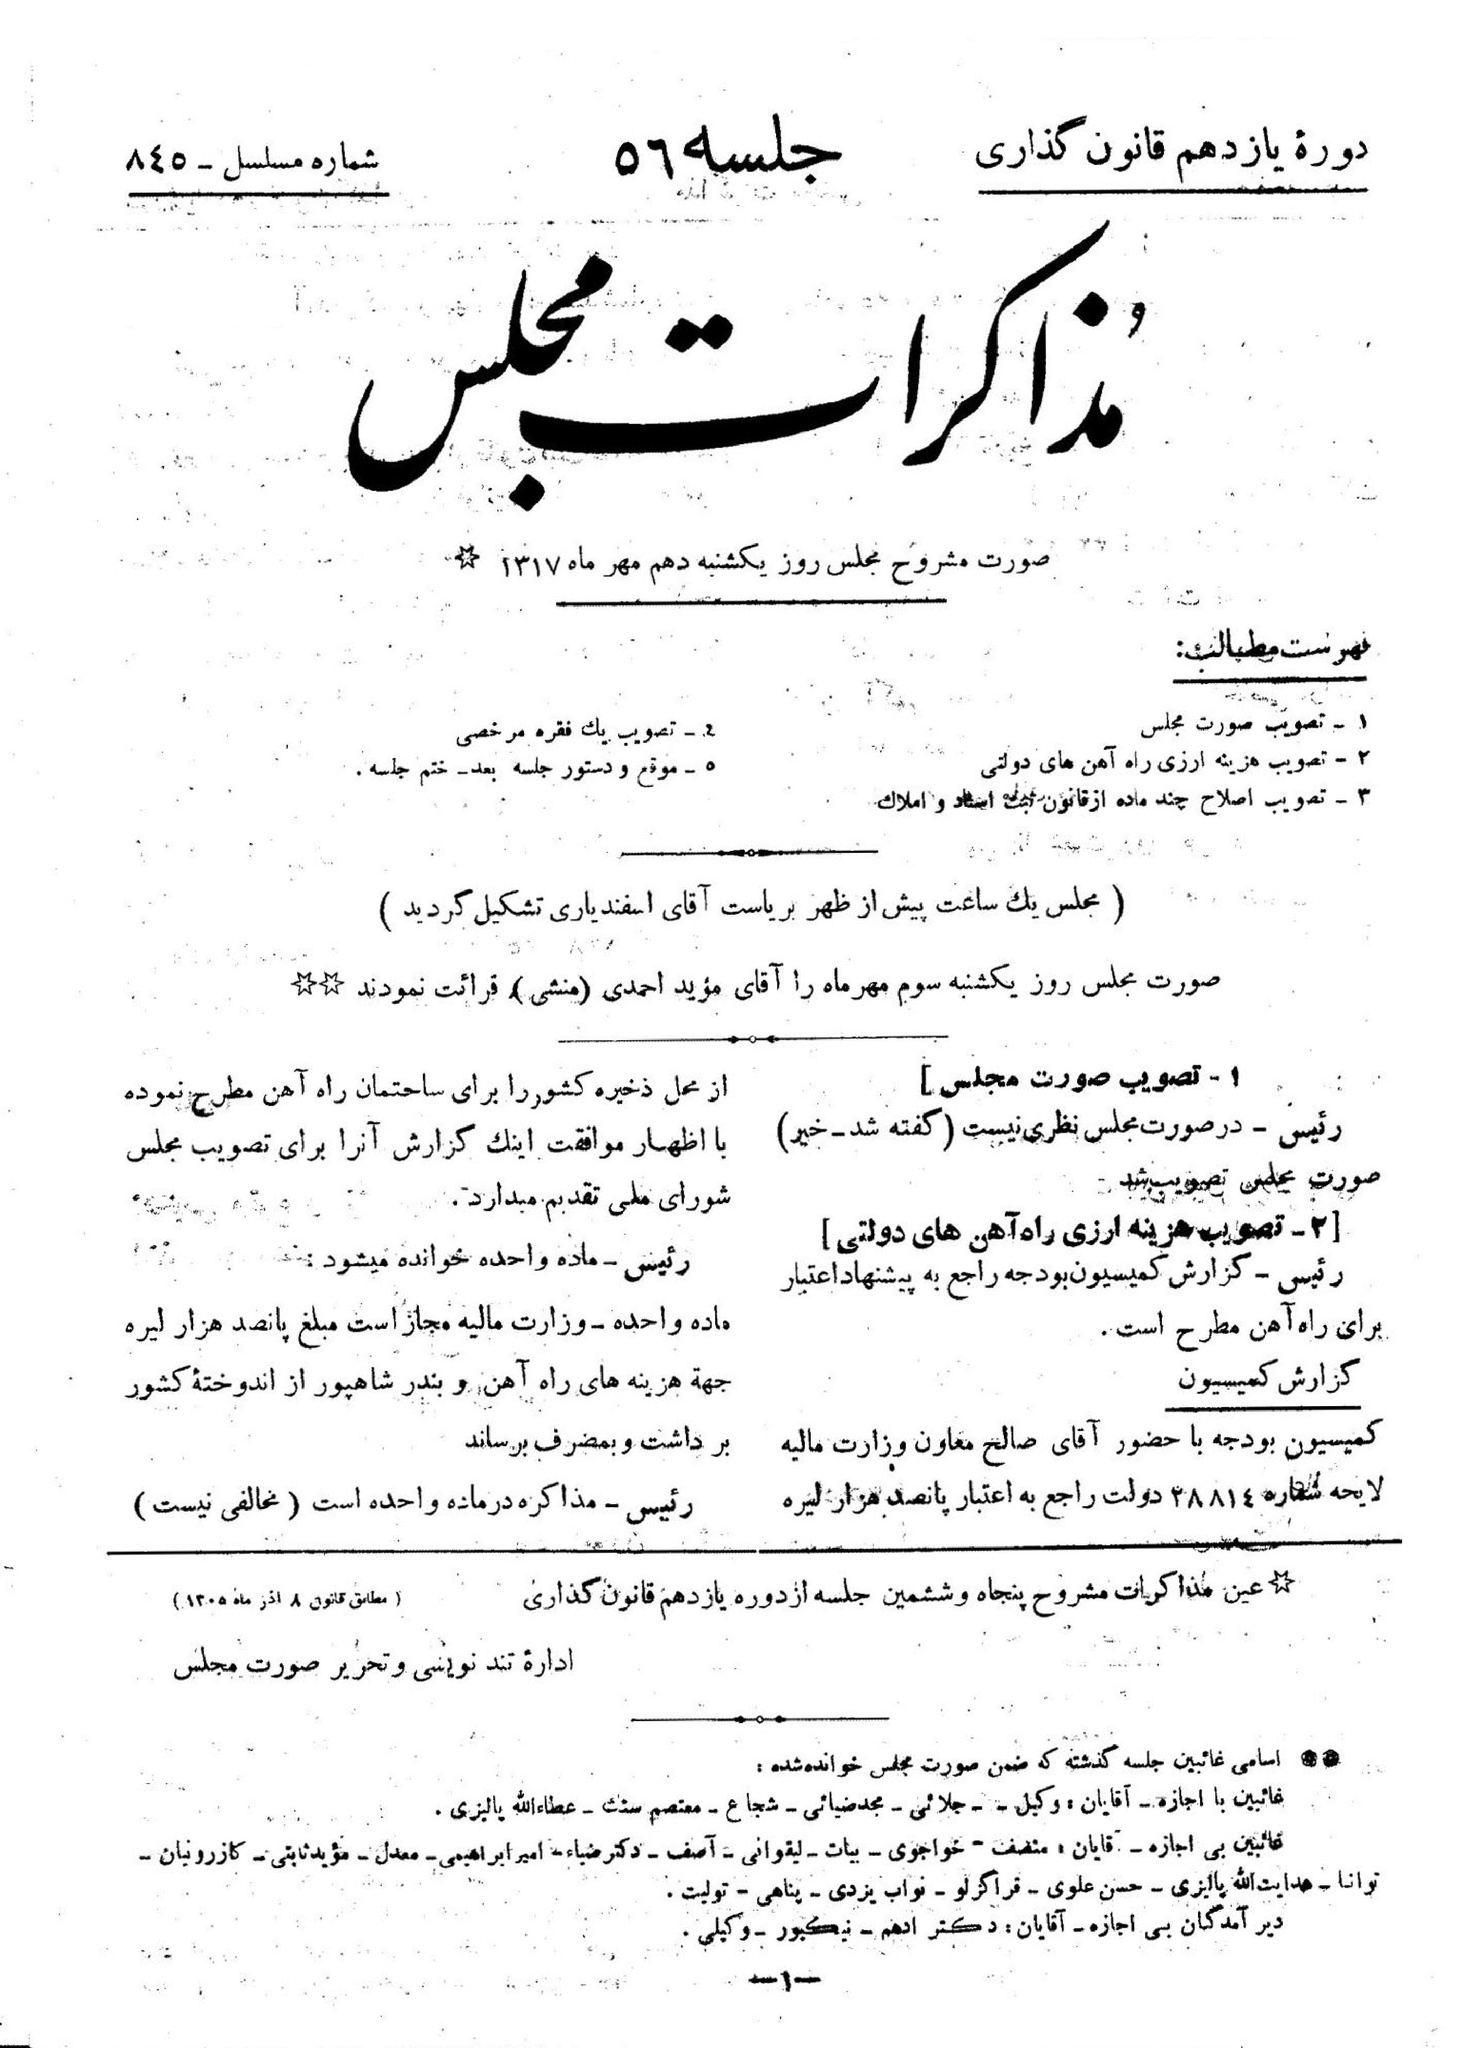 دورهٔ یازدهم قانون گذاری
جلسه ٥٦
شماره مسلسل ـ ٨٤٥
مُذاکرات مجلس
صورت مشروح مجلس روز یکشنبه دهم مهر ماه ١٣١٧ ☆
فهرست مطالب:
١ ـ تصویب صورت مجلس
٢ ـ تصویب هزینه ارزی راه آهن های دولتی
٣ ـ تصویب اصلاح چند ماده از قانون ثبت اسناد و املاك
٤ ـ تصویب یك فقره مرخصی
٥ ـ موقع و دستور جلسه بعد ـ ختم جلسه .
( مجلس یك ساعت پیش از ظهر بریاست آقای اسفندیاری تشکیل گردید )
صورت مجلس روز یکشنبه سوم مهرماه را آقای مؤید احمدی (منشی) قرائت نمودند ☆☆
١ ـ تصویب صورت مجلس ]
رئیس ـ در صورت مجلس نظری نیست (گفته شد ـ خیر)
صورت مجلس تصویب شد
[ ٢ ـ تصویب هزینه ارزی راه آهن های دولتی ]
رئیس ـ گزارش کمیسیون بودجه راجع به پیشنهاد اعتبار
برای راه آهن مطرح است .
گزارش کمیسیون
کمیسیون بودجه با حضور آقای صالح معاون وزارت مالیه
لایحه شماره ٣٨٨١٤ دولت راجع به اعتبار پانصد هزار لیره
از محل ذخیره کشور را برای ساختمان راه آهن مطرح نموده
با اظهار موافقت اینك گزارش آنرا برای تصویب مجلس
شورای ملی تقدیم میدارد .
رئیس ـ ماده واحده خوانده میشود :
ماده واحده ـ وزارت مالیه مجاز است مبلغ پانصد هزار لیره
جهة هزینه های راه آهن و بندر شاهپور از اندوختهٔ کشور
برداشت و بمصرف برساند
رئیس ـ مذاکره در ماده واحده است ( مخالفی نیست )
☆ عین مذاکرات مشروح پنجاه و ششمین جلسه از دوره یازدهم قانون گذاری
( مطابق قانون ٨ آذر ماه ١٣٠٥ )
ادارهٔ تند نویسی و تحریر صورت مجلس
●● اسامی غائبین جلسه گذشته که ضمن صورت مجلس خوانده شده :
غائبین با اجازه ـ آقایان : وکیل ـ جلائی ـ مجد ضیائی ـ شجاع ـ معتصم سنك ـ عطاءالله پالیزی .
غائبین بی اجازه ـ آقایان : منصف ـ خواجوی ـ بیات ـ لیقوانی ـ آصف ـ دکتر ضیاء ـ امیر ابراهیمی ـ معدل ـ مؤید ثابتی ـ کازرونیان ـ
توانا ـ هدایت الله پالیزی ـ حسن علوی ـ قراگزلو ـ نواب یزدی ـ پناهی ـ تولیت .
دیر آمدگان بی اجازه ـ آقایان : دکتر ادهم ـ نیکپور ـ وکیلی .
ـ ١ ـ